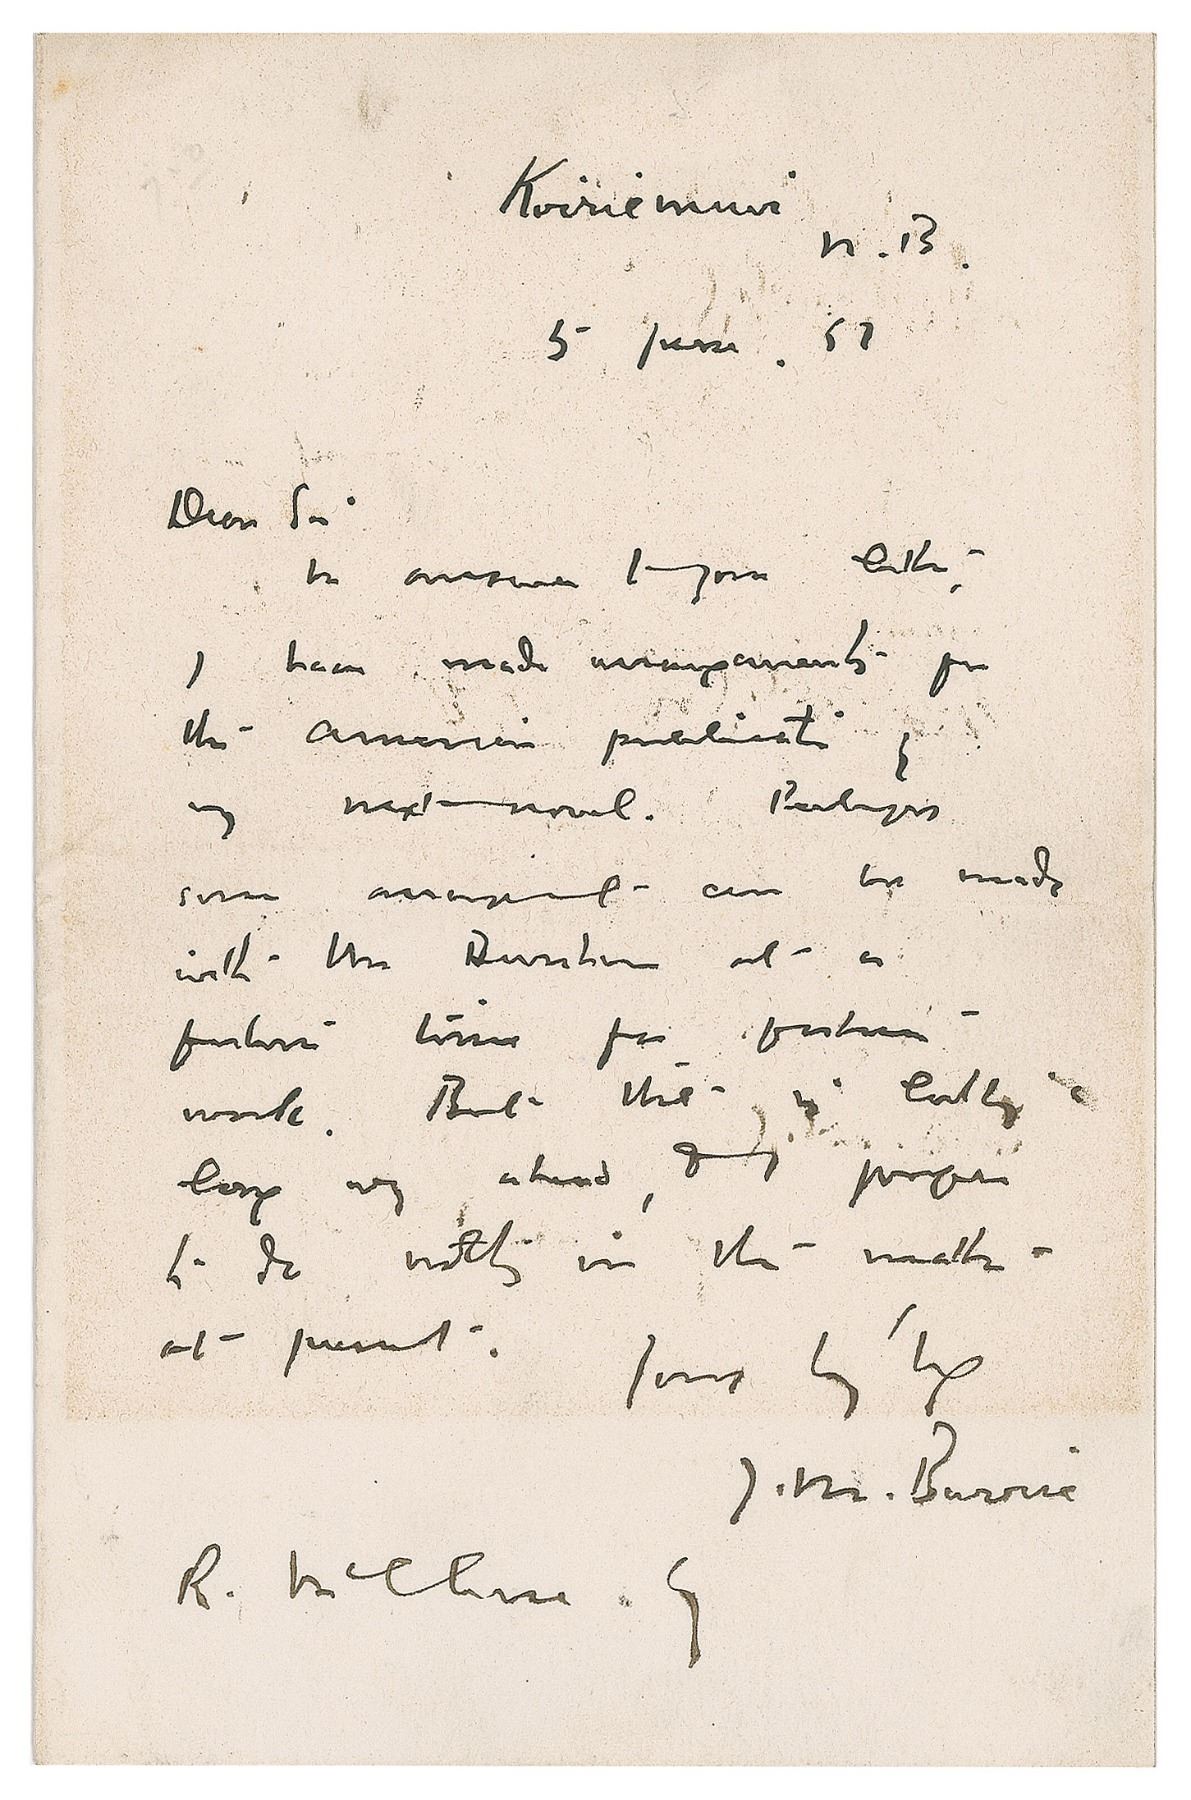 Kirriemuir
N.B.
5 June.
Dear Sir
In answer to your letter,
I have made arrangements for
the American publication of
my next novel. Perhaps
some arrangement can be made
with the at a
future time for future
work. But this is a
long way ahead, & I propose
to do nothing in the matter
at present.
Yours
J. M. Barrie
R. McClure. Esq